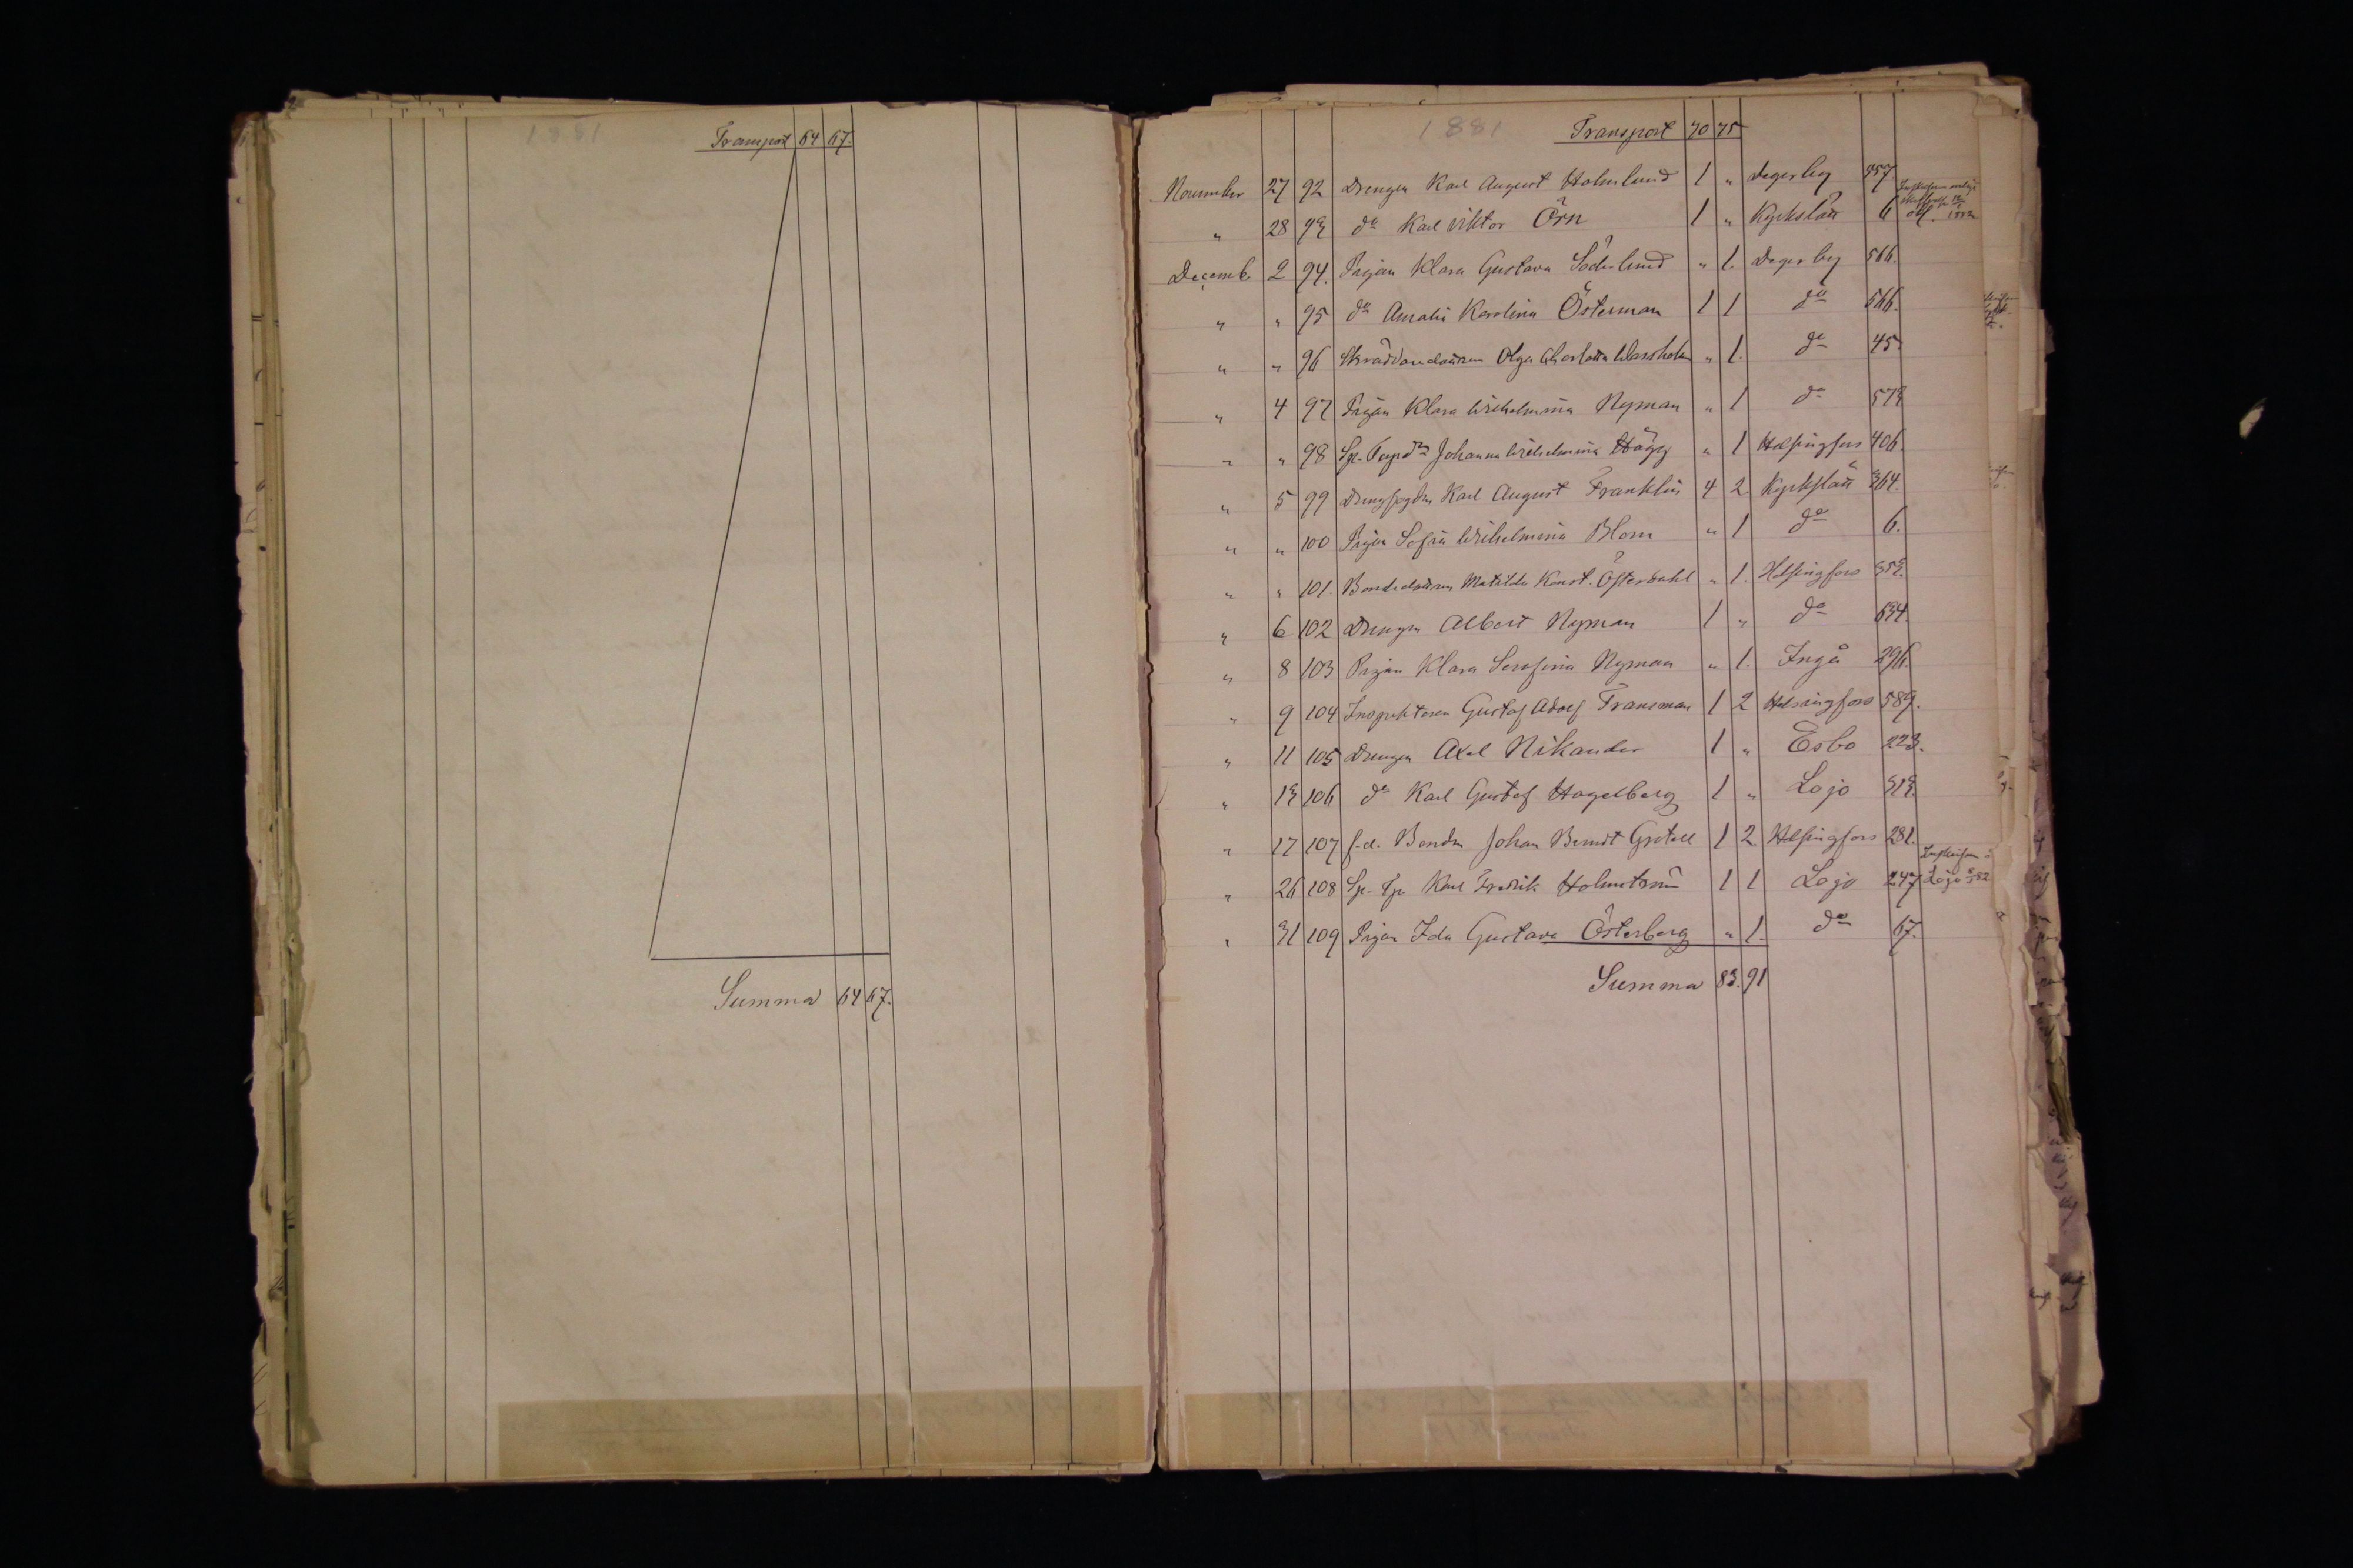 1881
Transport 64 67.
Summa 64 67.
1881 Transport 70 75
November 27 92 Drengen Karl August Holmlund 1 " Degerby 957
" 28 93 do Karl Viktor Örn 1 " Kyrkslätt 6
Decemb. 2 94. Pigan Klara Gustava Söderlund " 1. Degerby 566.
" " 95 do Amalia Karolina Österman 1 1 do 566.
" " 96 Olga " 1. do 45.
" 4 97 Pigan Klara Wilhelmina Nyman " 1 do 573
" " 98 Johanna Wilhelmina Hägg " 1 Helsingfors 406.
" 5 99 Karl August Franklin 4 2. Kyrkslätt 364.
" " 100 Pigan Sofia Wilhelmina Blom " 1 do 6.
" " 101. Matilda Konst. Österdahl " 1. Helsingfors 353.
" 6 102 Drengen Albert Nyman 1 " do 634.
" 8 103 Pigan Klara Serafina Nyman " 1. Ingå 296.
" 9 104 Inspektoren Gustaf Adolf Fransman 1 2 Helsingfors 589.
" 11 105 Drengen Axel Nikander 1 " Esbo 223.
" 13 106 do Karl Gustaf Hagelberg 1 " Lojo 313.
" 17 107 f.d. Bonden Johan Berndt Grotell 1 2. Helsingfors 281.
" 26 108 Karl Fredrik Holmström 1 1 Lojo 247 Lojo
" 31 109 Pigan Ida Gustava Österberg " 1. do 67.
Summa 83. 91